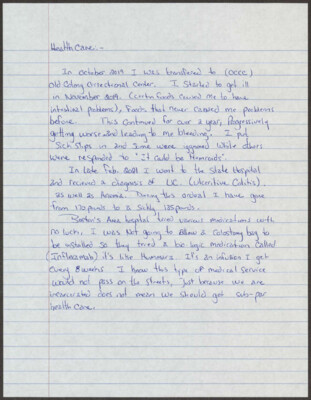 Health Care.-
In October 2019 I was transfered to (OCCC)
Old Colony Correctional Center. I started to get ill
in November 2019. (Certin foods caused me to have
intestinal problems), Foods that never caused me problems
before. This continued for over a year, Progressively
getting worse and leading to me bleeding. I put
Sick Slips in and some were ignored while others
were responded to "It could be Hemroids".
In Late Feb. 2021 I went to the State Hospital
and recieved a diagnosis of UC. (Ulceritive Colitis).
as well as Anemia. During this ordeal I have gone
from pounds to a Sickly 125pounds.
Area hospital tried various medications with
no luck, I was Not going to allow a Colostomy bag to
be installed so they tried a bio logic medication called
(Infleximab) it's like Hummera. It's an infusion I get
every 8 weeks. I know this type of medical service
would not pass on the streets, Just because we are
incarcerated does not mean we should get sub-par
health care.